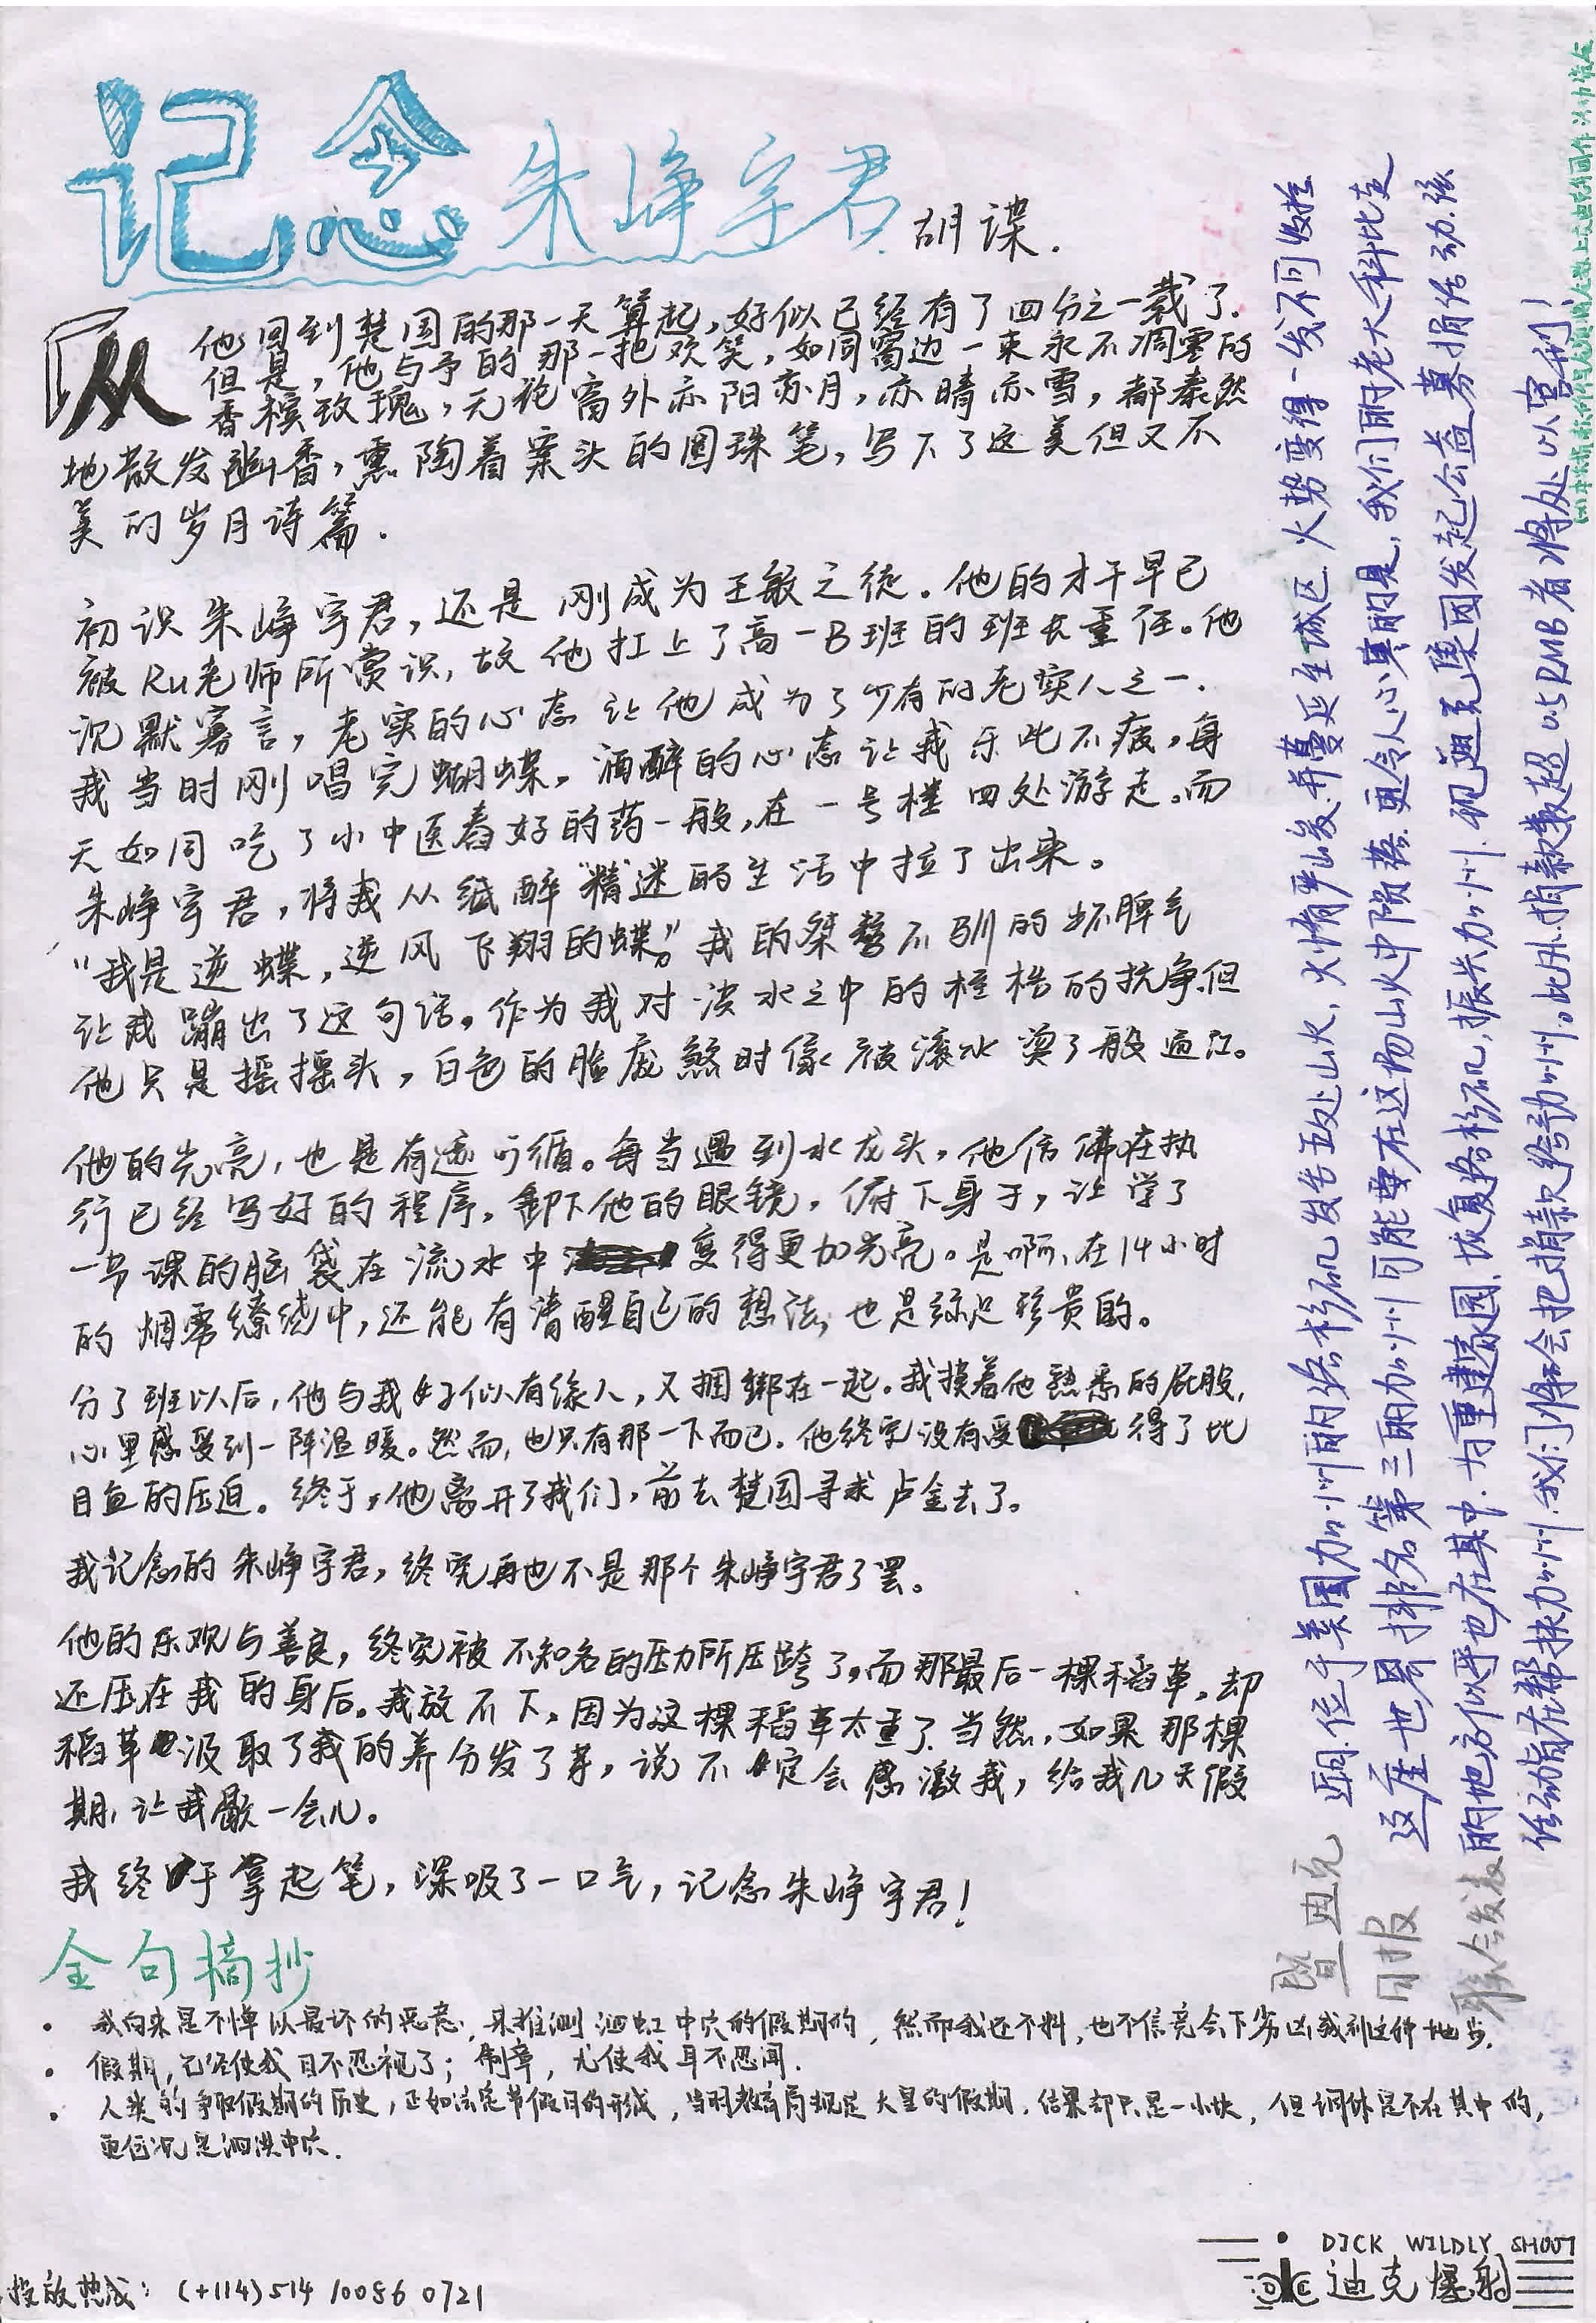 记念朱峥宇君 胡谍.
从他回到楚国的那一天算起,好似已经有了四分之一载了.
但是,他与予的那一把欢笑,如同窗边一束永不凋零的
香槟玫瑰,无论窗外亦阳亦月,亦晴亦雪,都泰然
地散发幽香,熏陶着案头的圆珠笔,写下了这美但又不
美的岁月诗篇.
初识朱峥宇君,还是刚成为王敏之徒.他的才干早已
被Ru老师所赏识,故他扛上了高一B班的班长重任。他
沉默寡言,老实的心态让他成为了少有的老实人之一.
我当时刚唱完蝴蝶,酒醉的心态让我乐此不疲,每
天如同吃了小中医春好的药一般,在一号楼四处游走。而
朱峥宇君,将我从纸醉"精"迷的生活中拉了出来。
"我是逆蝶,逆风飞翔的蝶,"我的桀骜不驯的坏脾气
让我蹦出了这句话。作为我对淡水之中的桎梏的抗争.但
他只是摇摇头,白色的脸庞煞时像被滚水烫了般通红。
他的光亮,也是有迹可循。每当遇到水龙头,他仿佛在执
行已经写好的程序,卸下他的眼镜,俯下身子,让学了
一节课的脑袋在流水中变得更加光亮。是啊,在14小时
的烟雾缭绕中,还能有清醒自己的想法,也是弥足珍贵的。
分了班以后,他与我好似有缘人,又捆绑在一起。我摸着他熟悉的屁股,
心里感受到一阵温暖。然而,也只有那一下而已.他终究没有受得了比
目鱼的压迫。终于,他离开了我们,前去楚国寻求卢金去了。
我记念的朱峥宇君,终究再也不是那个朱峥宇君了罢。
他的乐观与善良,终究被不知名的压力所压跨了,而那最后一棵稻草,却
还压在我的身后。我放不下,因为这棵稻草太重了.当然,如果那棵
稻草汲取了我的养分发了芽,说不定会感激我,给我几天假
期,让我歇一会儿。
我终于拿起笔,深吸了一口气,记念朱峥宇君!
金句摘抄
· 我向来是不惮以最坏的恶意,来推测泗虹中穴的假期的,然而我还不料,也不信竟会下劣凶残到这种地步.
· 假期,已经使我目不忍视了;制章,尤使我耳不忍闻.
· 人类的争取假期的历史,正如法定节假日的形成,当时教育局规定大量的假期,结果却只是一小块,但调休是不在其中的,
更何况是泗洪中穴.
投放热线:(+114)514 10086 0721
DICK WILDLY SHOOT
迪克爆射
暨迪克
日报
联合发表
近日.位于美国加州的洛杉矶发生五处山火,火情严峻.并蔓延至城区.火势变得一发不可收拾
这座世界排名第三的加州可能要在这场山火中陨落.更令人心寒的是,我们的老大科比走
的地方似乎也在其中.为重建家园,恢复洛杉矶,振兴加州.现迪克集团发起公益募捐活动.该
活动旨在帮扶加州.我们将会把捐款给予加州。此外.捐款数超0.5RMB者将处以宫刑!